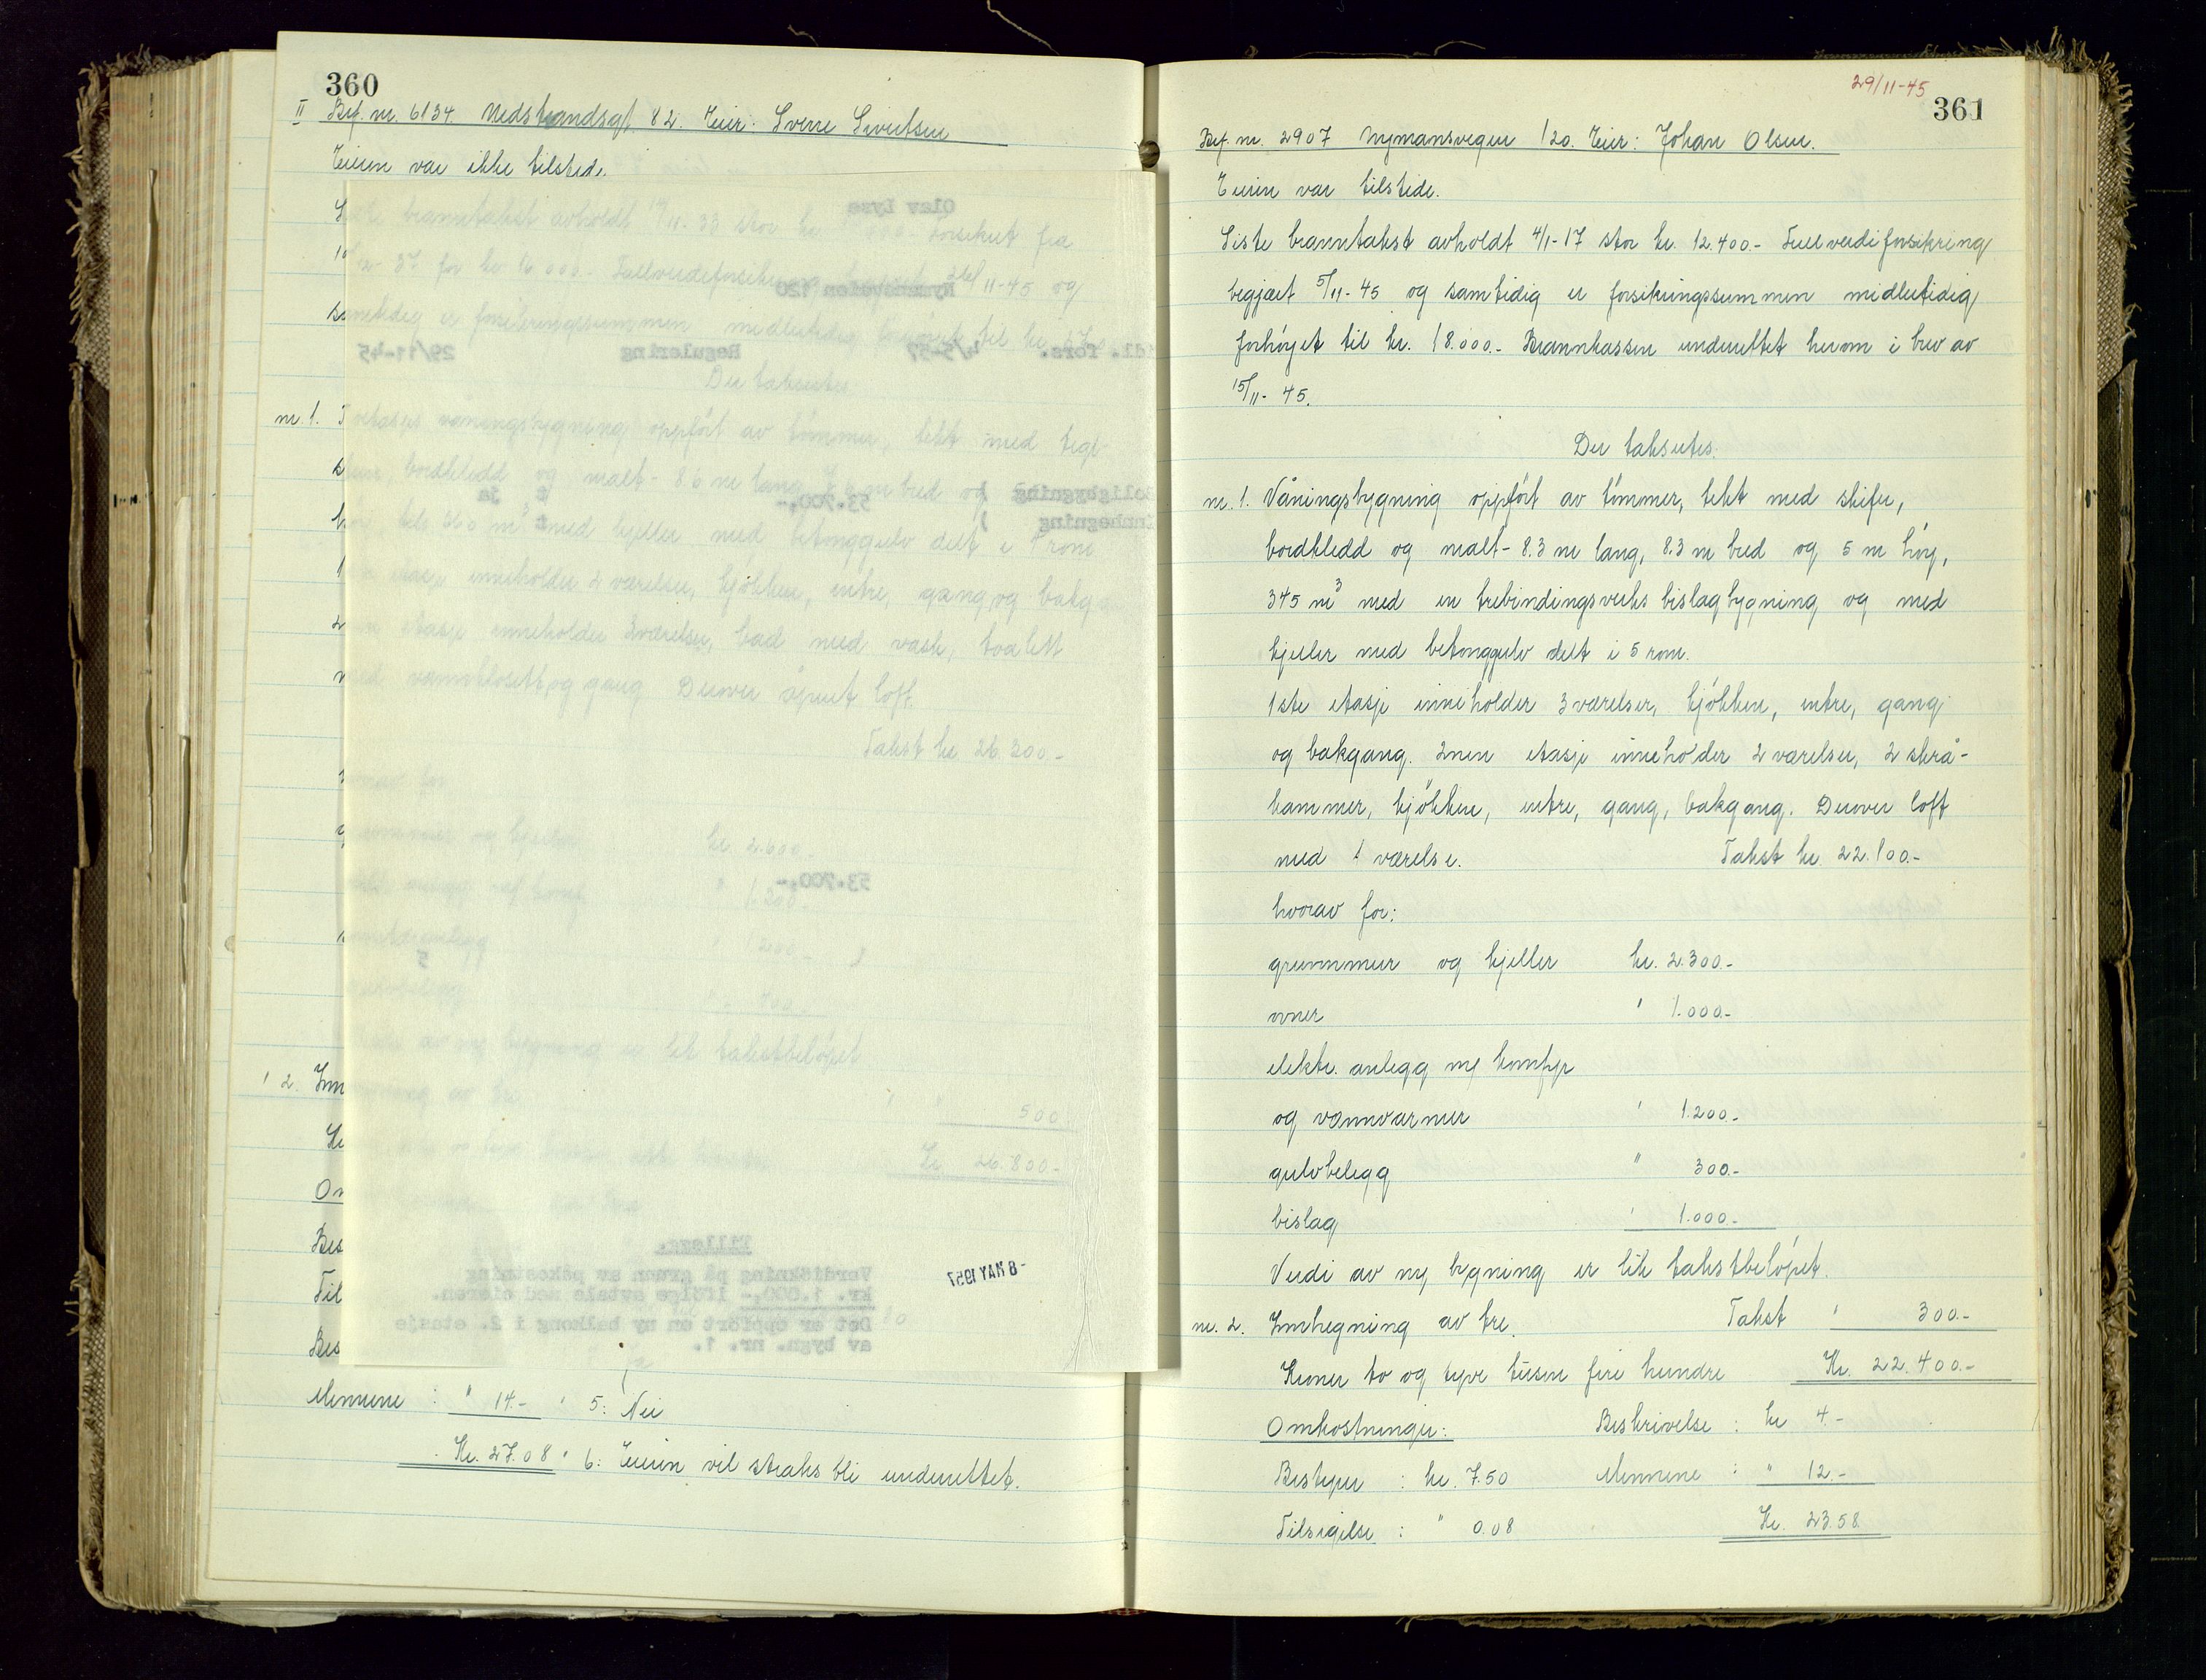 360
II Bef. nr. 6134. Nedstrandsgt. 82. Eier: Sverre Sivertsen
Eieren var ikke tilstede.
branntakst avholdt 17/11-33 stor kr. forsikret fra
37 for kr. 16.000.- Fullverdiforsikring 26/11-45 og
samtidig er forsikringssummen midlertidig til kr.
Der takseres
nr. 1. Toetasjes våningsbygning oppført av tømmer, tekt med tegl-
sten, bordkledd og malt - 8.6 m lang bred og
360 m³ med kjeller med betonggulv delt i rom
etasje inneholder 2 værelser, kjøkken, entre, gang og bakg
etasje inneholder 3 værelser, bad med vask, toalett
med vannklosett og gang. Derover åpent loft.
Takst kr. 26.300.-
hvorav for
grunnmur og kjeller kr. 2.600.-
elektr. anlegg m/ komfyr " 1.200.-
" 1.200.-
gulvbelegg " 400.-
Verdi av ny bygning er lik takstbeløpet
" 2. Innhegning av tre " " 500
Kr. 26.800.-
Om
Bes
Til
Bes
Mennene : " 14.- " 5: Nei
Kr. 27.08 " 6: Eieren vil straks bli underrettet.
Olav Lyse
Nymansveien 120
Midl. fors. 4/5-57 Regulering 29/11-45
Boligbygning ) 53.700,- ja
Innhegning )
53.700,-
5
Tillegg.
Verdiökning på grunn av påkostning
kr. 1.000,- ifölge avtale med eieren.
Det er oppfört en ny balkong i 2. etasje
av bygn. nr. 1.
- 8 MAY 1957
29/11-45
361
Bef. nr. 2907 Nymansvegen 120. Eier: Johan Olsen.
Eieren var tilstede.
Siste branntakst avholdt 4/1-17 stor kr. 12.400.- Fullverdiforsikring
begjært 5/11-45 og samtidig er forsikringssummen midlertidig
forhøyet til kr. 18.000.- Brannkassen underrettet herom i brev av
15/11-45.
Der takseres.
nr. 1. Våningsbygning oppført av tømmer, tekt med skifer,
bordkledd og malt - 8.3 m lang, 8.3 m bred og 5 m høy,
345 m³ med en trebindingsverks bislagbygning og med
kjeller med betonggulv delt i 5 rom.
1ste etasje inneholder 3 værelser, kjøkken, entre, gang
og bakgang. 2nen etasje inneholder 2 værelser, 2 skrå-
kammer, kjøkken, entre, gang, bakgang. Derover loft
med 1 værelse. Takst kr. 22.100.-
hvorav for:
grunnmur og kjeller kr. 2.300.-
ovner " 1.000.-
elektr. anlegg m/ komfyr
og vannvarmer " 1.200.-
gulvbelegg " 300.-
bislag " 1.000.-
Verdi av ny bygning er lik takstbeløpet.
nr. 2. Innhegning av tre. Takst " 300.-
Kroner to og tyve tusen fire hundre Kr. 22.400.-
Omkostninger: Beskrivelse : kr 4.-
Bestyrer : kr. 7.50 Mennene : " 12.-
Tilsigelse : " 0.08 Kr. 23.58